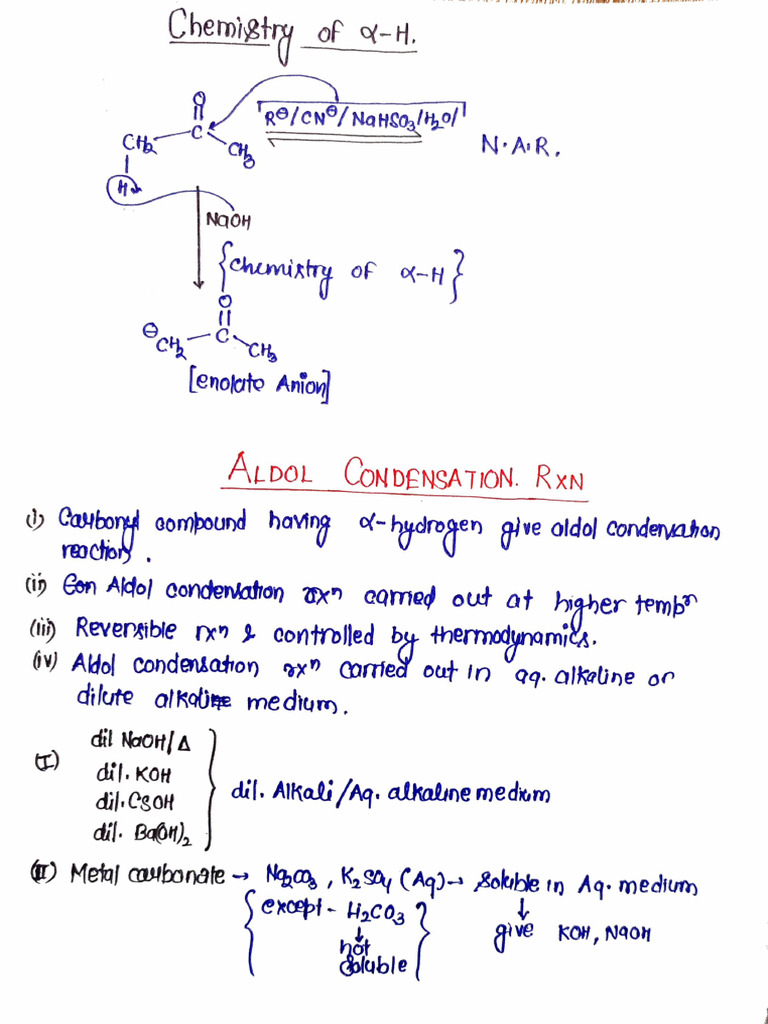 Chemistry of α-H.
O
R⊖/CN⊖/NaHSO3/H2O/
CH2 C CH3
N.A.R.
H
NaOH
{Chemistry of α-H}
O
⊖CH2 C CH3
[enolate Anion]
ALDOL CONDENSATION. RXN
(i) Carbonyl compound having α-hydrogen give aldol condensation
reaction.
(ii) Con Aldol condensation rxn carried out at higher tempr
(iii) Reversible rxn & controlled by thermodynamics.
(iv) Aldol condensation rxn carried out in aq. alkaline or
dilute alkaline medium.
(I) dil NaOH/Δ
dil. KOH
dil. CSOH
dil. Ba(OH)2
} dil. Alkali/Aq. alkaline medium
(II) Metal carbonate → Na2CO3, K2SO4 (Aq) → Soluble in Aq. medium
{except - H2CO3}
↓
not
soluble
↓
give KOH, NaOH